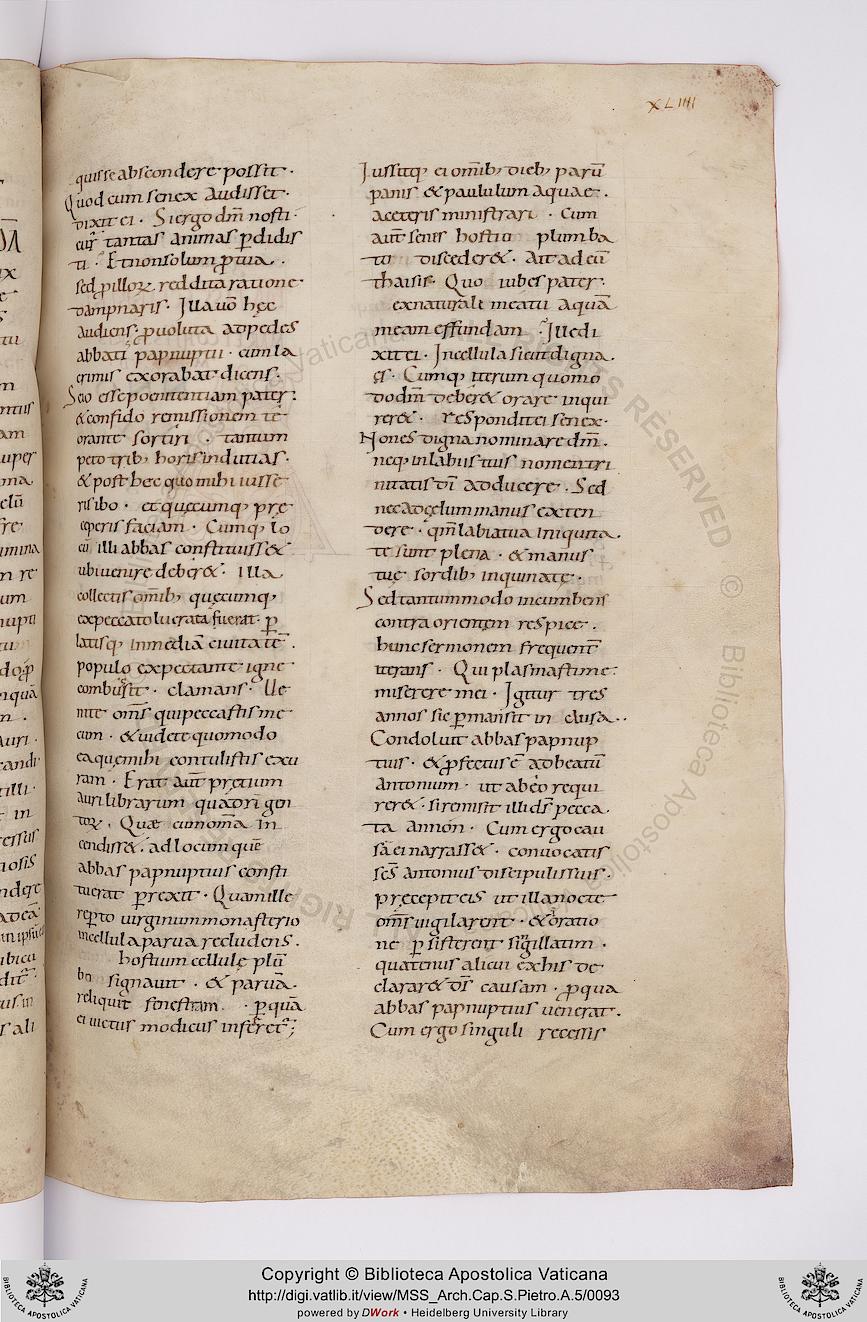 XLIIII
quisse abscondere possit ·
Quod cum senex audisset ·
dixit ei · Si ergo dm̄ nosti ·
cur tantas animas ꝑdidis
ti · Et non solum ꝓ tua ·
sed ꝓ illoꝝ reddita ratione
dampnaris · Illa uō hęc
audiens · ꝓuoluta ad pedes
abbati papnuptii · cum la
crimis exorabat dicens ·
Scio esse poenitentiam pater ·
& confido remissionem te
orante sortiri · tantum
peto trib; horis indutias ·
& post hec quo mihi iusse
ris ibo · et quęcumq; prę
ceperis faciam · Cumq; lo
cū illi abbas constituiss&
ubi uenire deber& · Illa
collectis omīb; quęcumq;
ex peccato lucrata fuerat · ꝑ
latisq; in mediā ciuitatē ·
populo expectante igne
combussit · clamans · Ue
nite omīs qui peccastis me
cum · & uidete quomodo
ea quę mihi contulistis exu
ram · Erat aūt prętium
auri librarum quadrigen
toꝝ · Quae cum omīa in
cendiss& · ad locum quē
abbas papnuptius consti
tuerat ꝑrexit · Quam ille
reꝑto uirginum monasterio
in cellula parua recludens ·
hostium cellulę plū
bo signauit · & paruā
reliquit fenestram · ꝑ quā
ei uictus modicus inferret᷑;
Iussitq; ei omīb; dieb; parū
panis & paululum aquae ·
a ceteris ministrari · Cum
aūt senis hostio plumba
to disceder& · Ait ad eū
thaisis · Quo iubes pater ·
ex naturali meatu aquā
meam effundam · Ille di
xit ei · In cellula sicut digna
es · Cumq; iterum quomo
do dm̄ deber& orare inqui
rer& · respondit ei senex ·
Non es digna nominare dm̄ ·
neq; in labiis tuis nomen tri
nitatis dī adducere · Sed
nec ad cęlum manus exten
dere · qm̄ labia tua iniquita
te sunt plena · & manus
tuę sordib; inquinatę ·
Sed tantummodo incumbens
contra orientem respice ·
hunc sermonem frequent̄
iterans · Qui plasmasti me ·
miserere mei · Igitur tres
annos sic ꝑmansit in clusa ·
Condoluit abbas papnup
tius · & ꝓfectus ē ad beatū
antonium · ut ab eo requi
rer& · si remisit illi ds̄ pecca
ta an non · Cum ergo cau
sā ei narrass& · conuocatis
scs̄ antonius discipulis suis ·
pręcepit eis ut illa nocte
omīs uigilarent · & oratio
ne ꝑsisterent singillatim ·
quatenus alicui ex his de
clarar& ds̄ causam · ꝓ qua
abbas papnuptius uenerat ·
Cum ergo singuli recessis
Copyright © Biblioteca Apostolica Vaticana
http://digi.vatlib.it/view/MSS_Arch.Cap.S.Pietro.A.5/0093
powered by DWork • Heidelberg University Library